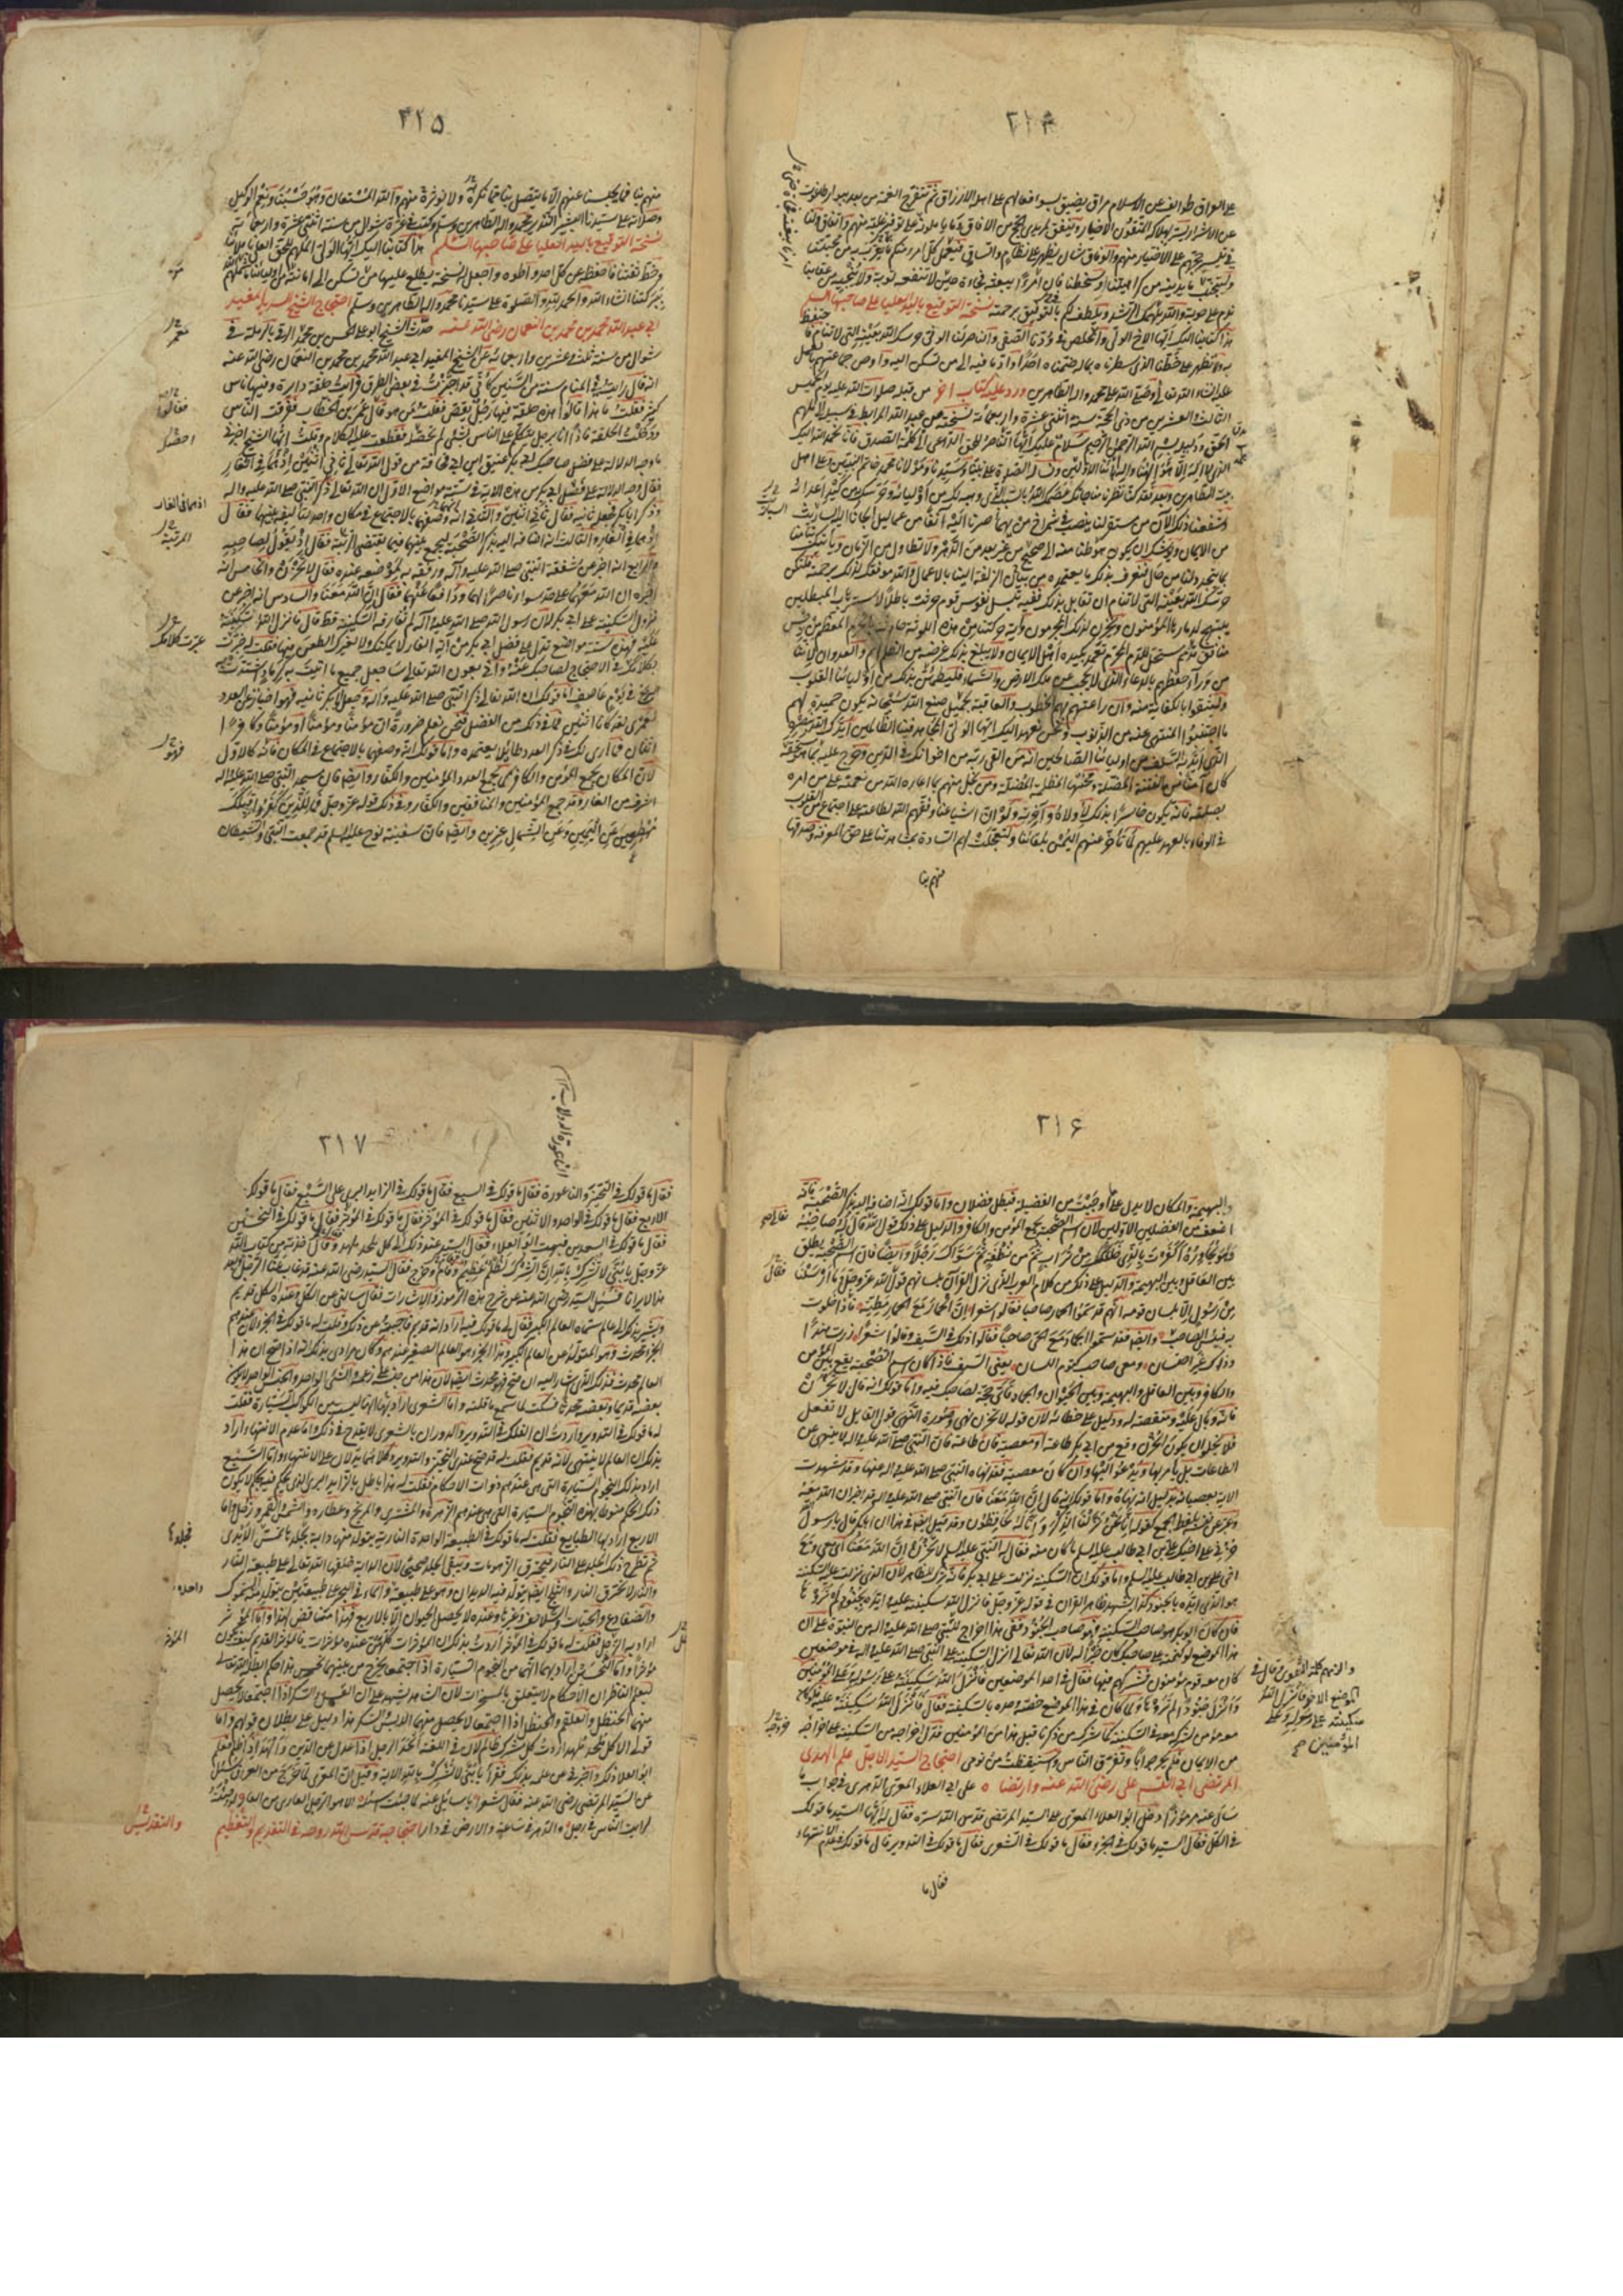 ٢١٤
على العراق طوائف عن الاسلام مراق يضيق بسوء فعالهم على اهله الارزاق ثم تنفرج الغمة من بعد ببوار طاغوت
من الاشرار ثم يسر بهلاكه المتقون الاخيار ويتفق لمريدي الحج من الآفاق ما يأملونه على توفير عليه منهم واتفاق ولنا
في تيسير حجهم على الاختيار منهم والوفاق شأن يظهر على نظام واتساق فيعمل كل امرء منكم ما يقرب به من محبتنا
وليتجنب ما يدنيه من كراهيتنا وسخطنا فان امرأ يبغته فجاءة حين لا تنفعه توبة ولا ينجيه من عقابنا
ندم على حوبة والله يلهمك الرشد ويلطف لكم بالتوفيق برحمته نسخة التوقيع باليد العليا على صاحبها السلم
هذا كتابنا اليك ايها الاخ الولي والمخلص في ودنا الصفي والناصر لنا الوفي حرسك الله بعينه التي لا تنام فا
به ولا تظهر على خطنا الذي سطرناه بماله ضمناه احدا واد ما فيه الى من تسكن اليه واوص جماعتهم بالعمل
عليه انشاء الله تعالى وصلى الله على محمد واله الطاهرين ورد عليه كتاب اخر من قبله صلوات الله عليه يوم الخميس
الثالث والعشرين من ذي الحجة سنة اثنتي عشرة واربعمائة نسخته من عبد الله المرابط في سبيله الى ملهم
الحق ودليله بسم الله الرحمن الرحيم سلام عليك ايها الناصر للحق الداعي الى كلمة الصدق فانا نحمد الله اليك
الذي لا اله الا هو الهنا واله آبائنا الاولين ونسأله الصلوة على نبينا وسيدنا ومولانا محمد خاتم النبيين وعلى اهل
بيته الطاهرين وبعد فقد كنا نظرنا مناجاتك عصمك الله بالسبب الذي وهبه لك من اوليائه وحرسك من كيد اعدائه
وشفعنا ذلك الآن من مستقر لنا ينصب في شمراخ من بهماء صرنا اليه آنفا من غماليل الجأنا اليه السباريت
من الايمان ويوشك ان يكون هبوطنا منه الى صحصح من غير بعد من الدهر ولا تطاول من الزمان ويأتيك نبأ منا
بما يتجدد لنا من حال فتعرف بذلك ما يعتمده من يتاتي الزلفة الينا بالاعمال والله موفقك لذلك برحمته فلتكن
حرسك الله بعينه التي لا تنام ان تقابل بذلك ففيه تبسل نفوس قوم حرثت باطلا لاسترهاب المبطلين
يبتهج لدمارها المؤمنون ويحزن لذلك المجرمون وآية حركتنا من هذه اللوثة حادثة بالحرم المعظم من رجس
منافق مذمم مستحل للدم المحرم يعمد بكيده اهل الايمان ولا يبلغ بذلك غرضه من الظلم لهم والعدوان لاننا
من وراء حفظهم بالدعاء الذي لا يحجب عن ملك الارض والسماء فليطمئن بذلك من اوليائنا القلوب
وليثقوا بالكفاية منه وان راعتهم بهم الخطوب والعاقبة بجميل صنع الله سبحانه تكون حميدة لهم
ما اجتنبوا المنهي عنه من الذنوب ونحن نعهد اليك ايها الولي المجاهد فينا الظالمين ايدك الله بنصره
الذي ايد به السلف من اوليائنا الصالحين انه من اتقى ربه من اخوانك في الدين وخرج عليه بما مستحقه
كان آمنا من الفتنة المضلة ومحنتها المظلمة المضلة ومن بخل منهم بما اعاره الله من نعمته على من امره
بصلته فانه يكون خاسرا بذلك لاولاه وآخرته ولو ان اشياعنا وفقهم الله لطاعته على اجتماع من القلوب
في الوفاء بالعهد عليهم لما تأخر عنهم اليمن بلقائنا ولتعجلت لهم السعادة بمشاهدتنا على حق المعرفة وصدقها
منهم بنا
٢١٥
منهم بنا فما يحبسنا عنهم الا ما يتصل بنا مما نكرهه ولا نؤثره منهم والله المستعان وهو حسبنا ونعم الوكيل
وصلاته على سيدنا البشير النذير محمد واله الطاهرين وسلم وكتب في غرة شوال من سنة اثنتي عشرة واربعمائة
نسخة التوقيع باليد العليا على صاحبها السلم هذا كتابنا اليك ايها الولي الملهم للحق العلي باملائنا
وخط ثقتنا فاخفه عن كل احد واطوه واجعل له نسخة يطلع عليها من تسكن الى امانته من اوليائنا شملهم
ببركتنا انشاء الله والحمد لله والصلوة على سيدنا محمد واله الطاهرين وسلم احتجاج الشيخ السديد المفيد
ابي عبد الله محمد بن محمد بن النعمان رضي الله عنه حدث الشيخ ابو علي الحسن بن محمد الرقي بالرملة في
شوال من سنة ثلث وعشرين واربعمائة عن الشيخ المفيد ابي عبد الله محمد بن محمد بن النعمان رضي الله عنه
انه قال رايت في المنام سنة من السنين كأني قد اجتزت في بعض الطرق فرأيت حلقة دايرة وفيها ناس
كثير فقلت ما هذا قالوا هذه حلقة فيها رجل يقص فقلت من هو قال عمر بن الخطاب ففرقت الناس
ودخلت الحلقة فاذا انا برجل يتكلم على الناس بشيء لم احصله فقطعت عليه الكلام وقلت ايها الشيخ اخبرني
ما وجه الدلالة على فضل صاحبك ابي بكر عتيق ابن ابي قحافة من قول الله تعالى ثاني اثنين اذ هما في الغار
فقال وجه الدلالة على فضل ابي بكر من هذه الاية في ستة مواضع الاول ان الله تعالى ذكر النبي صلى الله عليه واله
وذكر ابا بكر فجعله ثانيه فقال ثاني اثنين والثاني انه وصفهما بالاجتماع في مكان واحد لتأليفه بينهما فقال
اذ هما في الغار والثالث انه اضافه اليه بذكر الصحبة ليجمع بينهما فيما يقتضي الرتبة فقال اذ يقول لصاحبه
والرابع انه اخبر عن شفقة النبي صلى الله عليه وآله ورفقه به لموضعه عنده فقال لا تحزن والخامس انه
اخبره ان الله معهما على حد سواء ناصرا لهما ودافعا عنهما فقال ان الله معنا والسادس انه اخبر عن
نزول السكينة على ابي بكر لان رسول الله صلى الله عليه وآله لم تفارقه السكينة قط قال فانزل الله سكينته
عليه فهذه ستة مواضع تدل على فضل ابي بكر من آية الغار لا يمكنك ولا لغيرك الطعن فيها فقلت له حبرت
بكلامك في الاحتجاج لصاحبك عنه واني بعون الله تعالى ساجعل جميع ما اتيت به كرماد اشتدت به
الريح في يوم عاصف اما قولك ان الله تعالى ذكر النبي صلى الله عليه واله وجعل ابا بكر ثانيه فهو اخبار عن العدد
لعمري لقد كانا اثنين فما في ذلك من الفضل فنحن نعلم ضرورة ان مؤمنا ومؤمنا او مؤمنا وكافرا
اثنان فما ارى لك في ذكر العدد طائلا يعتمده واما قولك انه وصفهما بالاجتماع في المكان فانه كالاول
لان المكان يجمع المؤمن والكافر كما يجمع العدد المؤمنين والكفار وايضا فان مسجد النبي صلى الله عليه واله
اشرف من الغار وقد جمع المؤمنين والمنافقين والكفار وفي ذلك قوله عز وجل فما للذين كفروا قبلك
مهطعين عن اليمين وعن الشمال عزين وايضا فان سفينة نوح عليه السلم قد جمعت النبي والشيطان
٢١٦
والبهيمة والمكان لا يدل على ما اوجبت من الفضيلة فبطل فضلان واما قولك انه اضافه اليه بذكر الصحبة فانه
اضعف من الفضلين الاولين لان اسم الصحبة يجمع المؤمن والكافر والدليل على ذلك قوله تعالى قال له صاحبه
وهو يحاوره اكفرت بالذي خلقك من تراب ثم من نطفة ثم سواك رجلا وايضا فان اسم الصحبة يطلق
بين العاقل وبين البهيمة والدليل على ذلك من كلام العرب الذي نزل القرآن بلسانهم قول الله عز وجل وما ارسلنا
من رسول الا بلسان قومه انهم قد سموا الحمار صاحبا فقالوا شعرا ان الحمار مع الحمار مطية فاذا خلوت
به فبئس الصاحب وايضا فقد سموا الجماد مع الحي صاحبا فقالوا ذلك في السيف وقالوا شعرا زرت هندا
وذاك غير اختيان ومعي صاحب كتوم اللسان يعني السيف فاذا كان اسم الصحبة يقع بين المؤمن
والكافر وبين العاقل والبهيمة وبين الحيوان والجماد فاي حجة لصاحبك فيه واما قولك انه قال لا تحزن
فانه وبال عليه ومنقصة له ودليل على خطائه لان قوله لا تحزن نهي وصورة النهي قول القايل لا تفعل
فلا يخلو ان يكون الحزن وقع من ابي بكر طاعة او معصية فان كان طاعة فان النبي صلى الله عليه واله لا ينهى عن
الطاعات بل يأمر بها ويدعو اليها وان كان معصية فقد نهاه النبي صلى الله عليه واله عنها وقد شهدت
الاية بعصيانه بدليل انه نهاه واما قولك انه قال ان الله معنا فان النبي صلى الله عليه واله قد اخبر ان الله معه
وعبر عن نفسه بلفظ الجمع كقوله انا نحن نزلنا الذكر وانا له لحافظون وقد قيل ايضا في هذا ان ابا بكر قال يا رسول الله
حزني على اخيك علي بن ابي طالب عليه السلم ما كان منه فقال له النبي عليه السلم لا تحزن ان الله معنا اي معي ومع
اخي علي بن ابي طالب عليه السلم واما قولك ان السكينة نزلت على ابي بكر فانه ترك للظاهر لان الذي نزلت عليه السكينة
هو الذي ايده بالجنود كذا يشهد ظاهر القرآن في قوله عز وجل فانزل الله سكينته عليه وايده بجنود لم تروها
فان كان ابو بكر هو صاحب السكينة فهو صاحب الجنود وفي هذا اخراج للنبي صلى الله عليه واله من النبوة على ان
هذا الموضع لو كتمته على صاحبك كان خيرا له لان الله تعالى انزل السكينة على النبي صلى الله عليه واله في موضعين
كان معه قوم مؤمنون فشركهم فيها فقال في احد الموضعين فانزل الله سكينته على رسوله وعلى المؤمنين
وانزل جنودا لم تروها ولما كان في هذا الموضع خصه وحده بالسكينة فقال فانزل الله سكينته عليه فلو كان
معه مؤمن لشركه معه في السكينة كما شرك من ذكرنا قبل هذا من المؤمنين فدل اخراجه من السكينة على اخراجه
من الايمان فلم يحر جوابا وتفرق الناس واستيقظت من نومي احتجاج السيد الاجل علم الهدى
المرتضى ابي القسم علي رضي الله عنه وارتضاه على ابي العلاء المعري الدهري في جواب ما
سأل عنه مرموزا دخل ابو العلاء المعري على السيد المرتضى قدس الله سره فقال له ايها السيد ما قولك
في الكل فقال السيد ما قولك في الجزء فقال ما قولك في الشعرى فقال ما قولك في التدوير قال ما قولك في عدم الانتهاء
والزمهم كلمة التقوى وقال في
الموضع الاخر فانزل الله
سكينته على رسوله وعلى
المؤمنين
فقال ما
٢١٧
فقال ما قولك في التحيز والناعورة فقال ما قولك في السبع فقال ما قولك في الزايد البري على السبع فقال ما قولك
الاربع فقال ما قولك في الواحد والاثنين فقال ما قولك في المؤثر فقال ما قولك في المؤثرات فقال ما قولك في النحسين
فقال ما قولك في السعدين فبهت ابو العلاء فقال السيد عند ذلك الا كل ملحد ملهد وقال اخذته من كتاب الله
عز وجل يا بني لا تشرك بالله ان الشرك لظلم عظيم وقام وخرج فقال السيد رضي الله عنه قد غاب عنا الرجل وبعد
هذا لا يرانا فسئل السيد رضي الله عنه عن شرح هذه الرموز والاشارات فقال سألني عن الكل وعنده الكل قديم
ويشير بذلك الى عالم سماه العالم الكبير فقال لي ما قولك فيه اراد انه قديم فاجبته عن ذلك وقلت له ما قولك في الجزء لان عندهم
الجزء محدث وهو المتولد عن العالم الكبير وهذا الجزء هو العالم الصغير عندهم وكان مرادي بذلك انه اذا صح ان هذا
العالم محدث فذلك الذي اشار اليه ان صح فهو محدث ايضا لان هذا من جنسه على زعمه والشيء الواحد والجنس الواحد لا يكون
بعضه قديما وبعضه محدثا فسكت لما سمع ما قلته واما الشعرى اراد بها انها ليست من الكواكب السيارة فقلت
له ما قولك في التدوير اردت ان الفلك في التدوير والدوران بالشعرى لا يقدح في ذلك واما عدم الانتهاء اراد
بذلك ان العالم لا ينتهي لانه قديم فقلت له قد صح عندي التحيز والتدوير وكلاهما يدلان على الانتهاء واما السبع
اراد بذلك النجوم السيارة التي هي عندهم ذوات الاحكام فقلت له هذا باطل بالزايد البري الذي يحكم فيه بحكم لا يكون
ذلك الحكم منوطا بهذه النجوم السيارة التي هي عندهم الزهرة والمشتري والمريخ وعطارد والشمس والقمر وزحل واما
الاربع اراد بها الطبايع فقلت له ما قولك في الطبيعة الواحدة النارية يتولد منها دابة بجلدها تمس الايدي
ثم تطرح ذلك الجلد على النار فتحترق الزهومات ويبقى الجلد صحيحا لان الدابة خلقها الله تعالى على طبيعة النار
والنار لا تحرق النار والثلج ايضا يتولد فيه الديدان وهو على طبيعة والماء في البحر على طبيعتين يتولد منه السموك
والضفادع والحيات والسلاحف وغيرها وعنده لا يحصل الحيوان الا بالاربع فهذا مناقض لهذا واما المؤثر
اراد به الزحل فقلت له ما قولك في المؤثر اردت بذلك ان المؤثرات كلهن عنده مؤثرات فالمؤثر القديم كيف يكون
مؤثرا واما النحسين اراد بهما انهما من النجوم السيارة اذا اجتمعا يخرج من بينهما نحس هذا حكم ابطله الله تعالى
ليعلم الناظر ان الاحكام لا يتعلق بالمسخرات لان الشاهد يشهد على ان العسل والسكر اذا اجتمعا لا يحصل
منهما الحنظل والعلقم والحنظل اذا اجتمعا لا يحصل منهما الدبس والسكر هذا دليل على بطلان قولهم واما
قوله الا كل ملحد ملهد اردت كل مشرك ظالم لان في اللغة الحد الرجل اذا عدل عن الدين والهد اذا ظلم فعلم
ابو العلا ذلك واخبرني عن علمه بذلك فقرأ يا بني لا تشرك بالله الاية وقيل ان المعري لما خرج من العراق سئل
عن السيد المرتضى رضي الله عنه فقال شعرا يا سايلي عنه لما جئت اسئله الا هو الرجل العاري من العار لو جئته
لرايت الناس في رجل والدهر في ساعة والارض في دار احتجاجه قدس الله روحه في التقديم والتعظيم
والتقديس